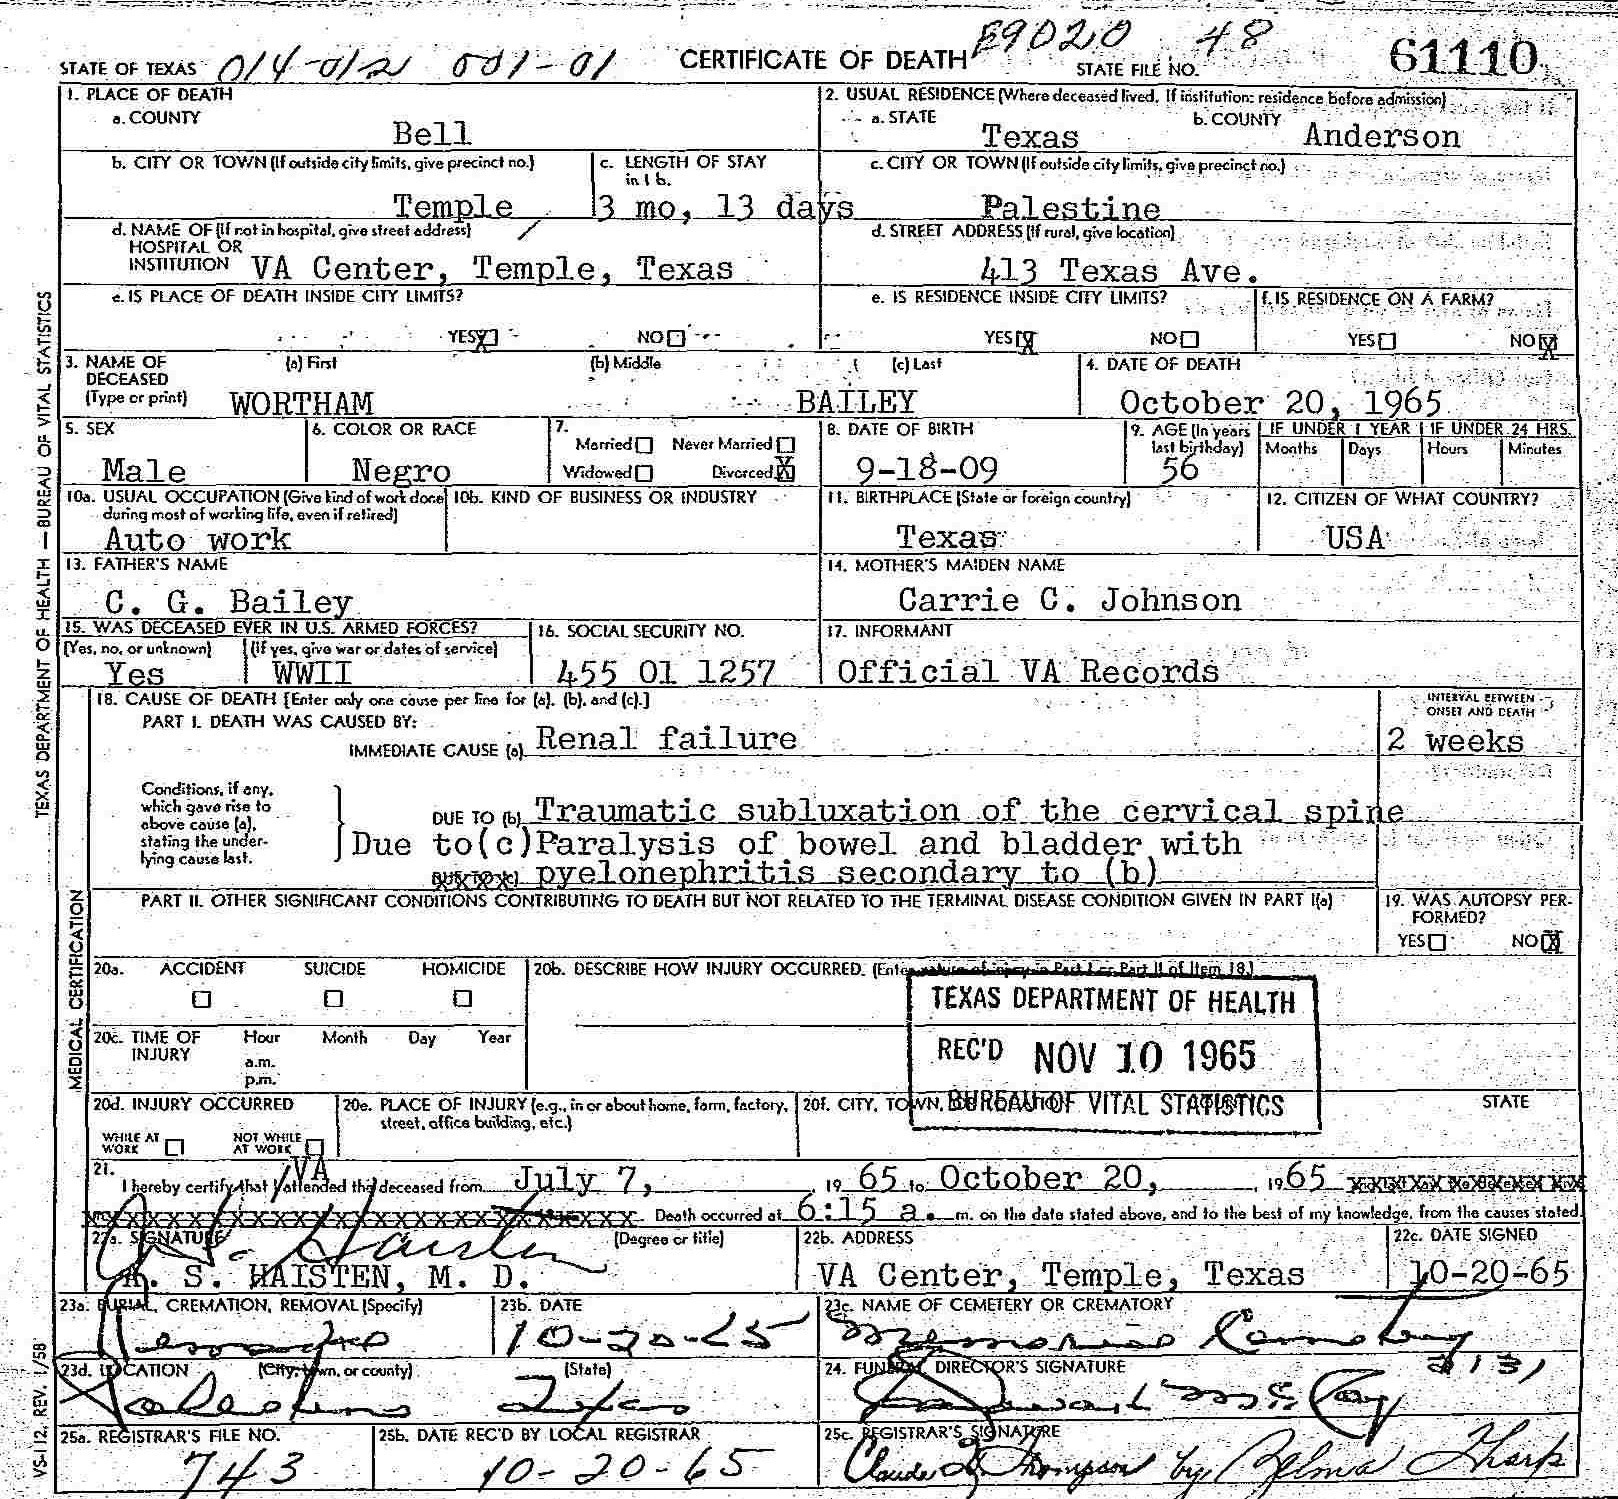 STATE OF TEXAS 014-012 001-01 CERTIFICATE OF DEATH E9020 48 STATE FILE NO. 61110
1. PLACE OF DEATH
a. COUNTY
Bell
2. USUAL RESIDENCE (Where deceased lived. If institution: residence before admission)
a. STATE Texas b. COUNTY Anderson
b. CITY OR TOWN (If outside city limits, give precinct no.)
Temple
c. LENGTH OF STAY in 1 b.
3 mo, 13 days
c. CITY OR TOWN (If outside city limits, give precinct no.)
Palestine
d. NAME OF (If not in hospital, give street address)
HOSPITAL OR
INSTITUTION VA Center, Temple, Texas
d. STREET ADDRESS (If rural, give location)
413 Texas Ave.
e. IS PLACE OF DEATH INSIDE CITY LIMITS?
YES X NO
e. IS RESIDENCE INSIDE CITY LIMITS?
YES X NO
f. IS RESIDENCE ON A FARM?
YES NO X
3. NAME OF DECEASED (Type or print)
(a) First (b) Middle (c) Last
WORTHAM BAILEY
4. DATE OF DEATH
October 20, 1965
5. SEX
Male
6. COLOR OR RACE
Negro
7.
Married Never Married
Widowed Divorced X
8. DATE OF BIRTH
9-18-09
9. AGE (In years last birthday)
56
IF UNDER 1 YEAR
Months Days
IF UNDER 24 HRS.
Hours Minutes
10a. USUAL OCCUPATION (Give kind of work done during most of working life, even if retired)
Auto work
10b. KIND OF BUSINESS OR INDUSTRY
11. BIRTHPLACE (State or foreign country)
Texas
12. CITIZEN OF WHAT COUNTRY?
USA
13. FATHER'S NAME
C. G. Bailey
14. MOTHER'S MAIDEN NAME
Carrie C. Johnson
15. WAS DECEASED EVER IN U.S. ARMED FORCES?
(Yes, no, or unknown) (If yes, give war or dates of service)
Yes WWII
16. SOCIAL SECURITY NO.
455 01 1257
17. INFORMANT
Official VA Records
18. CAUSE OF DEATH [Enter only one cause per line for (a), (b), and (c).]
INTERVAL BETWEEN ONSET AND DEATH
PART I. DEATH WAS CAUSED BY:
IMMEDIATE CAUSE (a) Renal failure
2 weeks
Conditions, if any,
which gave rise to
above cause (a),
stating the under-
lying cause last.
DUE TO (b) Traumatic subluxation of the cervical spine
Due to(c)Paralysis of bowel and bladder with
DUE TO (c) pyelonephritis secondary to (b)
PART II. OTHER SIGNIFICANT CONDITIONS CONTRIBUTING TO DEATH BUT NOT RELATED TO THE TERMINAL DISEASE CONDITION GIVEN IN PART I(a)
19. WAS AUTOPSY PER-
FORMED?
YES NO X
20a. ACCIDENT SUICIDE HOMICIDE
20b. DESCRIBE HOW INJURY OCCURRED. (Enter nature of injury in Part I or Part II of Item 18.)
TEXAS DEPARTMENT OF HEALTH
REC'D NOV 10 1965
BUREAU OF VITAL STATISTICS
20c. TIME OF INJURY Hour Month Day Year
a.m.
p.m.
20d. INJURY OCCURRED
WHILE AT WORK NOT WHILE AT WORK
20e. PLACE OF INJURY (e.g., in or about home, farm, factory, street, office building, etc.)
20f. CITY, TOWN, STATE
21. I hereby certify that / VA attended the deceased from July 7, 1965 to October 20, 1965
Death occurred at 6:15 a. m. on the date stated above, and to the best of my knowledge, from the causes stated.
22a. SIGNATURE (Degree or title)
A. S. Haisten
A. S. HAISTEN, M. D.
22b. ADDRESS
VA Center, Temple, Texas
22c. DATE SIGNED
10-20-65
23a. BURIAL, CREMATION, REMOVAL (Specify)
23b. DATE
10-20-65
23c. NAME OF CEMETERY OR CREMATORY
Memorial Cemetery
23d. LOCATION (City, town, or county) (State)
Palestine Texas
24. FUNERAL DIRECTOR'S SIGNATURE
McCoy
25a. REGISTRAR'S FILE NO.
743
25b. DATE REC'D BY LOCAL REGISTRAR
10-20-65
25c. REGISTRAR'S SIGNATURE
Claude Thompson by Zelma Tharp
TEXAS DEPARTMENT OF HEALTH — BUREAU OF VITAL STATISTICS
MEDICAL CERTIFICATION
VS-112, REV. 1/58